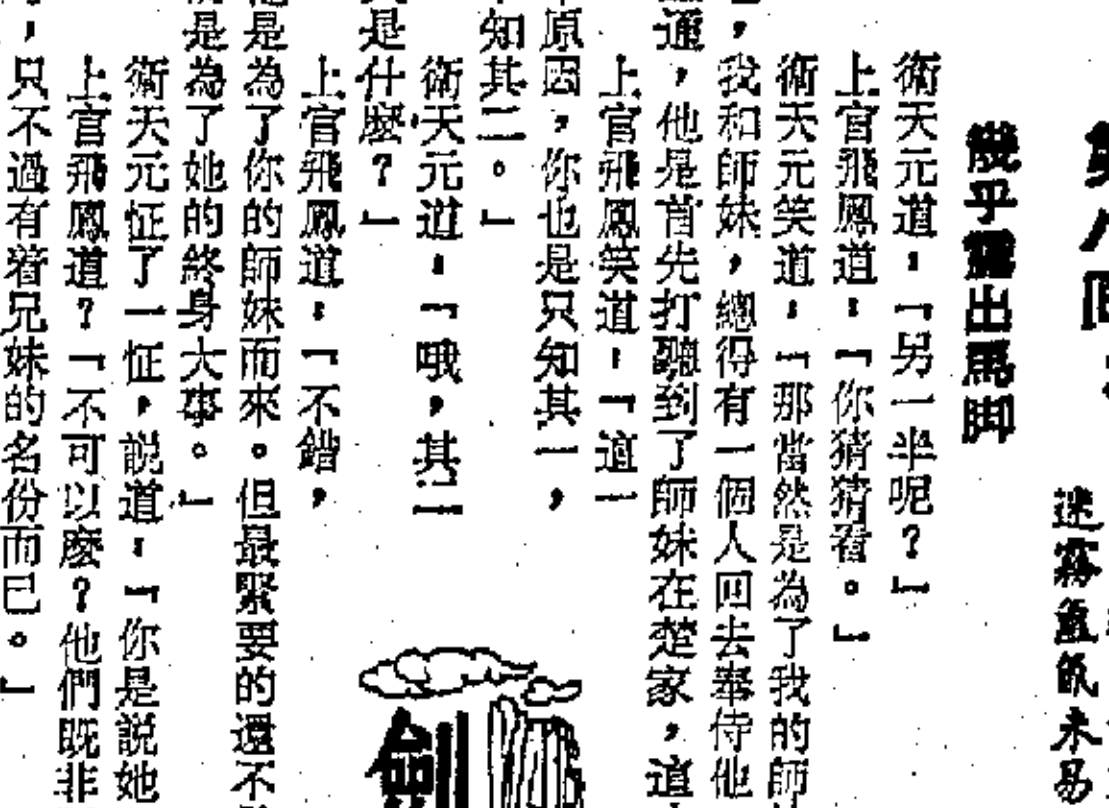 第八回
迷霧
未易
幾乎露出馬脚
衛天元道：「另一半呢？」
上官飛鳳道：「你猜猜看。」
衛天元笑道：「那當然是為了我的師
，我和師妹，總得有一個人回去奉侍他
通，他是首先打聽到了師妹在楚家，道
上官飛鳳笑道：「這一
原因，你也是只知其一，
知其二。」
衛天元道：「哦，其二
是什麼？」
上官飛鳳道：「不錯，
他是為了你的師妹而來。但最緊要的還不
是為了她的終身大事。」
衛天元怔了一怔，説道：「你是説她
上官飛鳳道？「不可以麽？他們既非
，只不過有着兄妹的名份而已。」